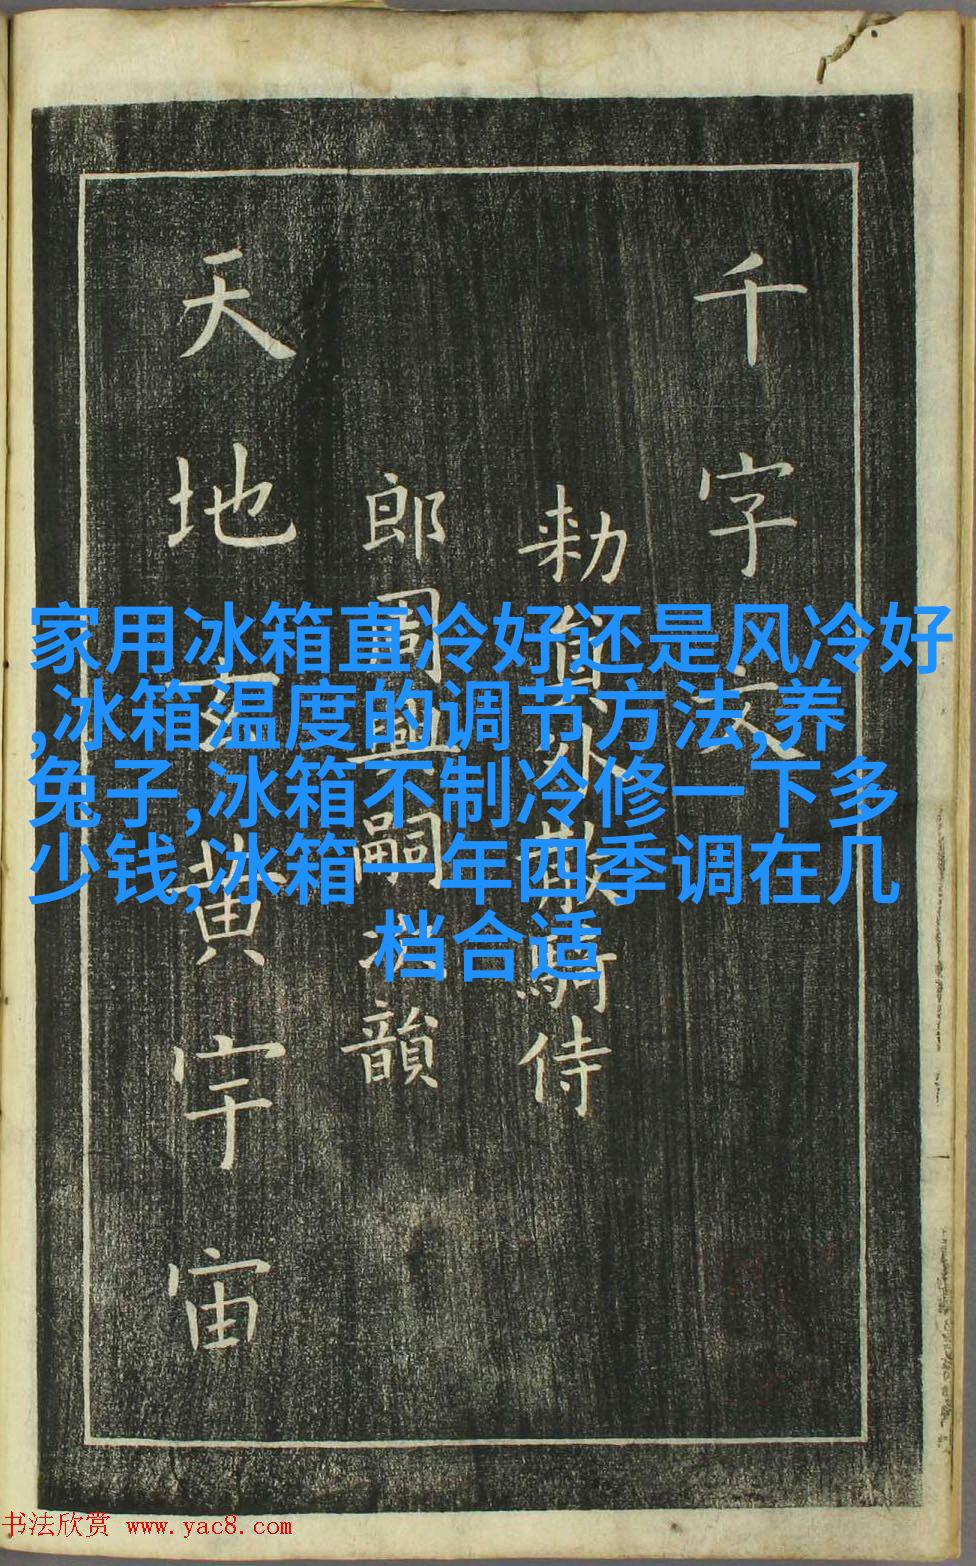 千字文
勑貟外散騎侍
郎周興嗣次韻
天地玄黄宇宙
家用冰箱直冷好还是风冷好
,冰箱温度的调节方法,养
兔子,冰箱不制冷修一下多
少钱,冰箱一年四季调在几
档合适
书法欣赏 www.yac8.com